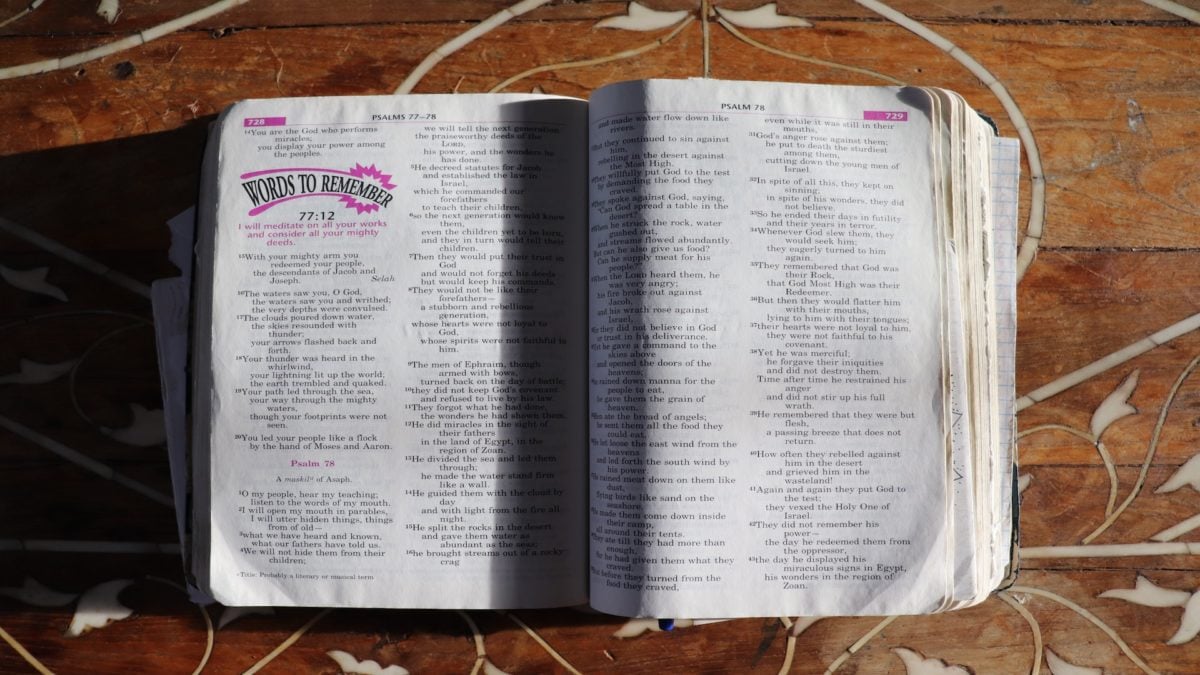 728
PSALMS 77–78
14You are the God who performs
miracles;
you display your power among
the peoples.
WORDS TO REMEMBER
77:12
I will meditate on all your works
and consider all your mighty
deeds.
15With your mighty arm you
redeemed your people,
the descendants of Jacob and
Joseph. Selah
16The waters saw you, O God,
the waters saw you and writhed;
the very depths were convulsed.
17The clouds poured down water,
the skies resounded with
thunder;
your arrows flashed back and
forth.
18Your thunder was heard in the
whirlwind,
your lightning lit up the world;
the earth trembled and quaked.
19Your path led through the sea,
your way through the mighty
waters,
though your footprints were not
seen.
20You led your people like a flock
by the hand of Moses and Aaron.
Psalm 78
A maskil of Asaph.
1O my people, hear my teaching;
listen to the words of my mouth.
2I will open my mouth in parables,
I will utter hidden things, things
from of old—
3what we have heard and known,
what our fathers have told us.
4We will not hide them from their
children;
Title: Probably a literary or musical term
we will tell the next generation
the praiseworthy deeds of the
LORD,
his power, and the wonders he
has done.
5He decreed statutes for Jacob
and established the law in
Israel,
which he commanded our
forefathers
to teach their children,
6so the next generation would know
them,
even the children yet to be born,
and they in turn would tell their
children.
7Then they would put their trust in
God
and would not forget his deeds
but would keep his commands.
8They would not be like their
forefathers—
a stubborn and rebellious
generation,
whose hearts were not loyal to
God,
whose spirits were not faithful to
him.
9The men of Ephraim, though
armed with bows,
turned back on the day of battle;
10they did not keep God's covenant
and refused to live by his law.
11They forgot what he had done,
the wonders he had shown them.
12He did miracles in the sight of
their fathers
in the land of Egypt, in the
region of Zoan.
13He divided the sea and led them
through;
he made the water stand firm
like a wall.
14He guided them with the cloud by
day
and with light from the fire all
night.
15He split the rocks in the desert
and gave them water as
abundant as the seas;
16he brought streams out of a rocky
crag
PSALM 78
729
and made water flow down like
rivers.
they continued to sin against
him,
rebelling in the desert against
the Most High.
They willfully put God to the test
by demanding the food they
craved.
They spoke against God, saying,
"Can God spread a table in the
desert?
When he struck the rock, water
gushed out,
and streams flowed abundantly.
But can he also give us food?
Can he supply meat for his
people?"
When the LORD heard them, he
was very angry;
his fire broke out against
Jacob,
and his wrath rose against
Israel,
they did not believe in God
or trust in his deliverance.
Yet he gave a command to the
skies above
and opened the doors of the
heavens;
rained down manna for the
people to eat,
he gave them the grain of
heaven.
ate the bread of angels;
he sent them all the food they
could eat.
He let loose the east wind from the
heavens
and led forth the south wind by
his power.
rained meat down on them like
dust,
flying birds like sand on the
seashore.
made them come down inside
their camp,
all around their tents.
They ate till they had more than
enough,
for he had given them what they
craved.
before they turned from the
food they craved,
even while it was still in their
mouths,
31God's anger rose against them;
he put to death the sturdiest
among them,
cutting down the young men of
Israel.
32In spite of all this, they kept on
sinning;
in spite of his wonders, they did
not believe.
33So he ended their days in futility
and their years in terror.
34Whenever God slew them, they
would seek him;
they eagerly turned to him
again.
35They remembered that God was
their Rock,
that God Most High was their
Redeemer.
36But then they would flatter him
with their mouths,
lying to him with their tongues;
37their hearts were not loyal to him,
they were not faithful to his
covenant.
38Yet he was merciful;
he forgave their iniquities
and did not destroy them.
Time after time he restrained his
anger
and did not stir up his full
wrath.
39He remembered that they were but
flesh,
a passing breeze that does not
return.
40How often they rebelled against
him in the desert
and grieved him in the
wasteland!
41Again and again they put God to
the test;
they vexed the Holy One of
Israel.
42They did not remember his
power—
the day he redeemed them from
the oppressor,
43the day he displayed his
miraculous signs in Egypt,
his wonders in the region of
Zoan.